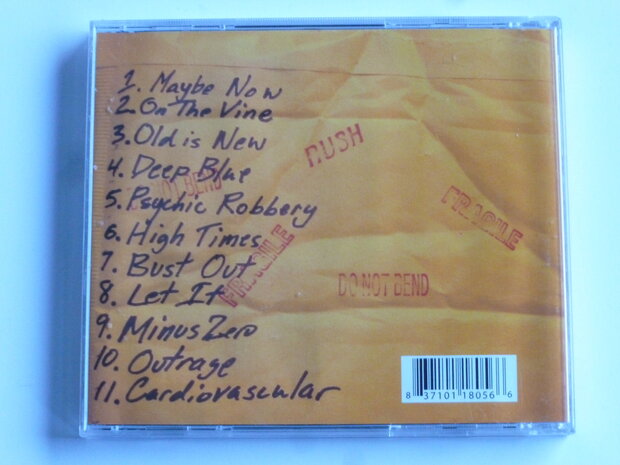 1. Maybe Now
2. On The Vine
3. Old is New
RUSH
4. Deep Blue
DO NOT BEND
5. Psychic Robbery
FRAGILE
6. High Times
7. Bust Out
FRAGILE
8. Let It
DO NOT BEND
9. Minus Zero
10. Outrage
11. Cardiovascular
8 37101 18056 6